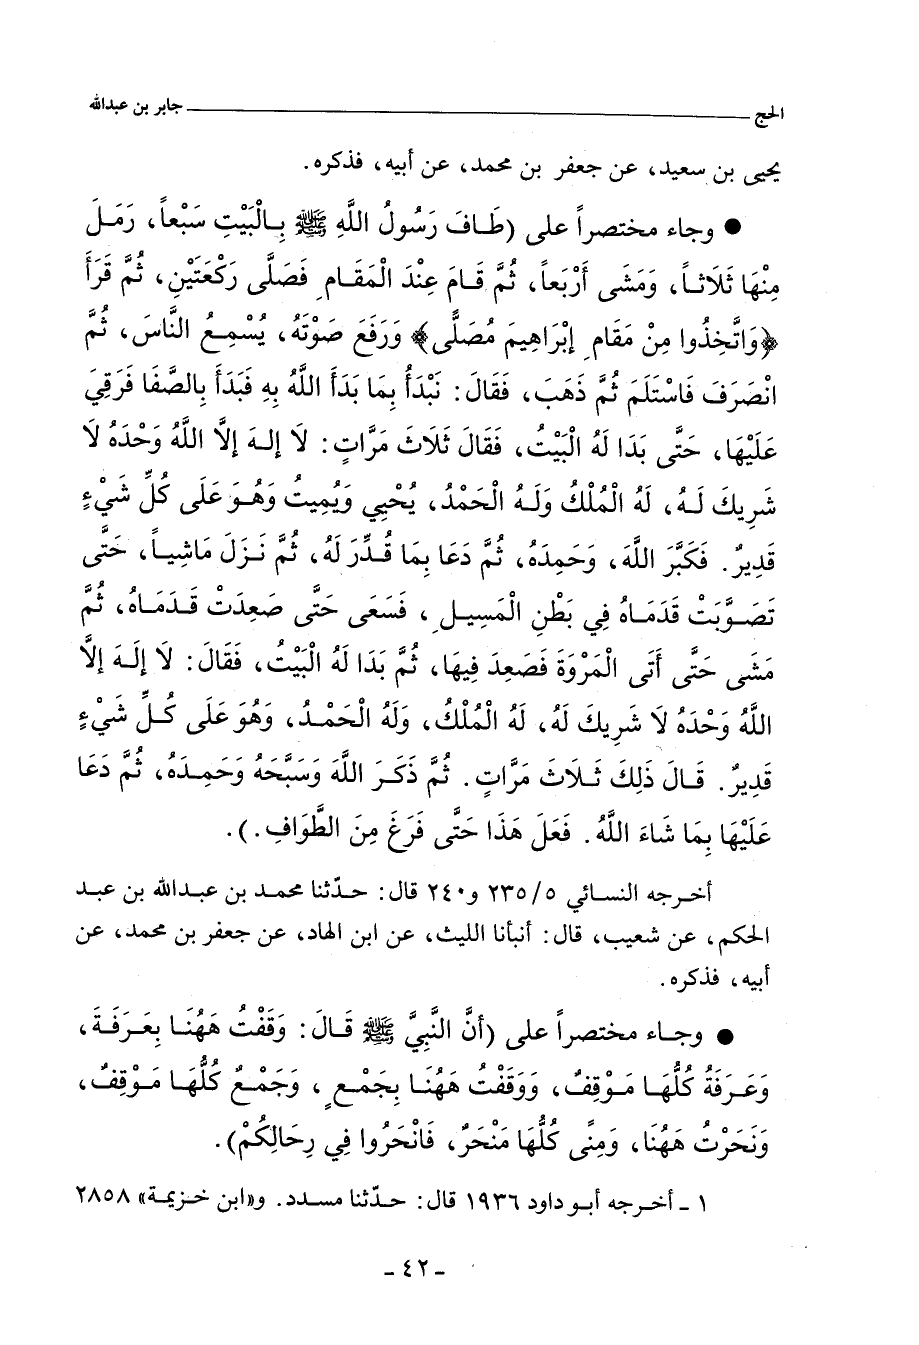 الحج ــــــــــــــــــــ جابر بن عبدالله
يحيى بن سعيد، عن جعفر بن محمد، عن أبيه، فذكره.
● وجاء مختصراً على (طَافَ رَسُولُ اللَّهِ ﷺ بِالْبَيْتِ سَبْعاً، رَمَلَ
مِنْهَا ثَلَاثاً، وَمَشَى أَرْبَعاً، ثُمَّ قَامَ عِنْدَ الْمَقَامِ فَصَلَّى رَكْعَتَيْنِ، ثُمَّ قَرَأَ
﴿وَاتَّخِذُوا مِنْ مَقَامِ إِبْرَاهِيمَ مُصَلًّى﴾ وَرَفَعَ صَوْتَهُ، يُسْمِعُ النَّاسَ، ثُمَّ
انْصَرَفَ فَاسْتَلَمَ ثُمَّ ذَهَبَ، فَقَالَ: نَبْدَأُ بِمَا بَدَأَ اللَّهُ بِهِ فَبَدَأَ بِالصَّفَا فَرَقِيَ
عَلَيْهَا، حَتَّى بَدَا لَهُ الْبَيْتُ، فَقَالَ ثَلَاثَ مَرَّاتٍ: لَا إِلهَ إِلَّا اللَّهُ وَحْدَهُ لَا
شَرِيكَ لَهُ، لَهُ الْمُلْكُ وَلَهُ الْحَمْدُ، يُحْيِي وَيُمِيتُ وَهُوَ عَلَى كُلِّ شَيْءٍ
قَدِيرٌ. فَكَبَّرَ اللَّهَ، وَحَمِدَهُ، ثُمَّ دَعَا بِمَا قُدِّرَ لَهُ، ثُمَّ نَزَلَ مَاشِياً، حَتَّى
تَصَوَّبَتْ قَدَمَاهُ فِي بَطْنِ الْمَسِيلِ، فَسَعَى حَتَّى صَعِدَتْ قَدَمَاهُ، ثُمَّ
مَشَى حَتَّى أَتَى الْمَرْوَةَ فَصَعِدَ فِيهَا، ثُمَّ بَدَا لَهُ الْبَيْتُ، فَقَالَ: لَا إِلَهَ إِلَّا
اللَّهُ وَحْدَهُ لَا شَرِيكَ لَهُ، لَهُ الْمُلْكُ، وَلَهُ الْحَمْدُ، وَهُوَ عَلَى كُلِّ شَيْءٍ
قَدِيرٌ. قَالَ ذَلِكَ ثَلَاثَ مَرَّاتٍ. ثُمَّ ذَكَرَ اللَّهَ وَسَبَّحَهُ وَحَمِدَهُ، ثُمَّ دَعَا
عَلَيْهَا بِمَا شَاءَ اللَّهُ. فَعَلَ هَذَا حَتَّى فَرَغَ مِنَ الطَّوَافِ.).
أخرجه النسائي ٢٣٥/٥ و٢٤٠ قال: حدّثنا محمد بن عبدالله بن عبد
الحكم، عن شعيب، قال: أنبأنا الليث، عن ابن الهاد، عن جعفر بن محمد، عن
أبيه، فذكره.
● وجاء مختصراً على (أَنَّ النَّبِيَّ ﷺ قَالَ: وَقَفْتُ هَهُنَا بِعَرَفَةَ،
وَعَرَفَةُ كُلُّهَا مَوْقِفٌ، وَوَقَفْتُ هَهُنَا بِجَمْعٍ، وَجَمْعٌ كُلُّهَا مَوْقِفٌ،
وَنَحَرْتُ هَهُنَا، وَمِنًى كُلُّهَا مَنْحَرٌ، فَانْحَرُوا فِي رِحَالِكُمْ).
١ ـ أخرجه أبو داود ١٩٣٦ قال: حدّثنا مسدد. و«ابن خزيمة» ٢٨٥٨
ـ ٤٢ ـ